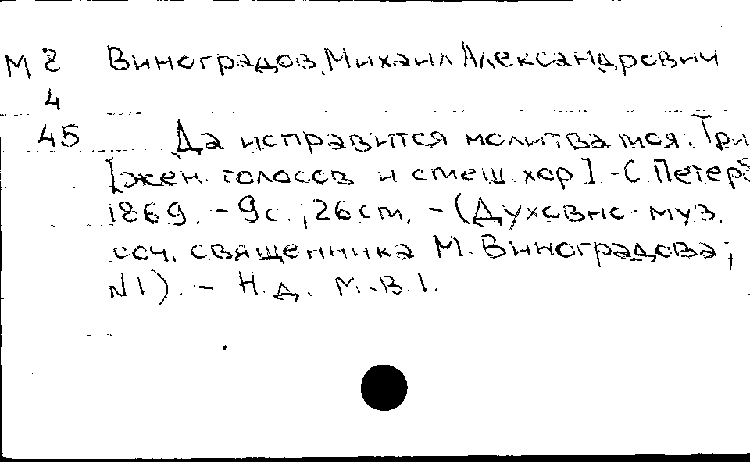 М 2 Виноградов, Михаил Александрович
4
45 Да исправится молитва моя: Три
[жен. голосов и смеш. хор]. - С. Петерб
1869. - 9 с.; 26 cm. - (Духовно-муз.
соч. священника М. Виноградова;
N 1). - Н.д. М.В.1.